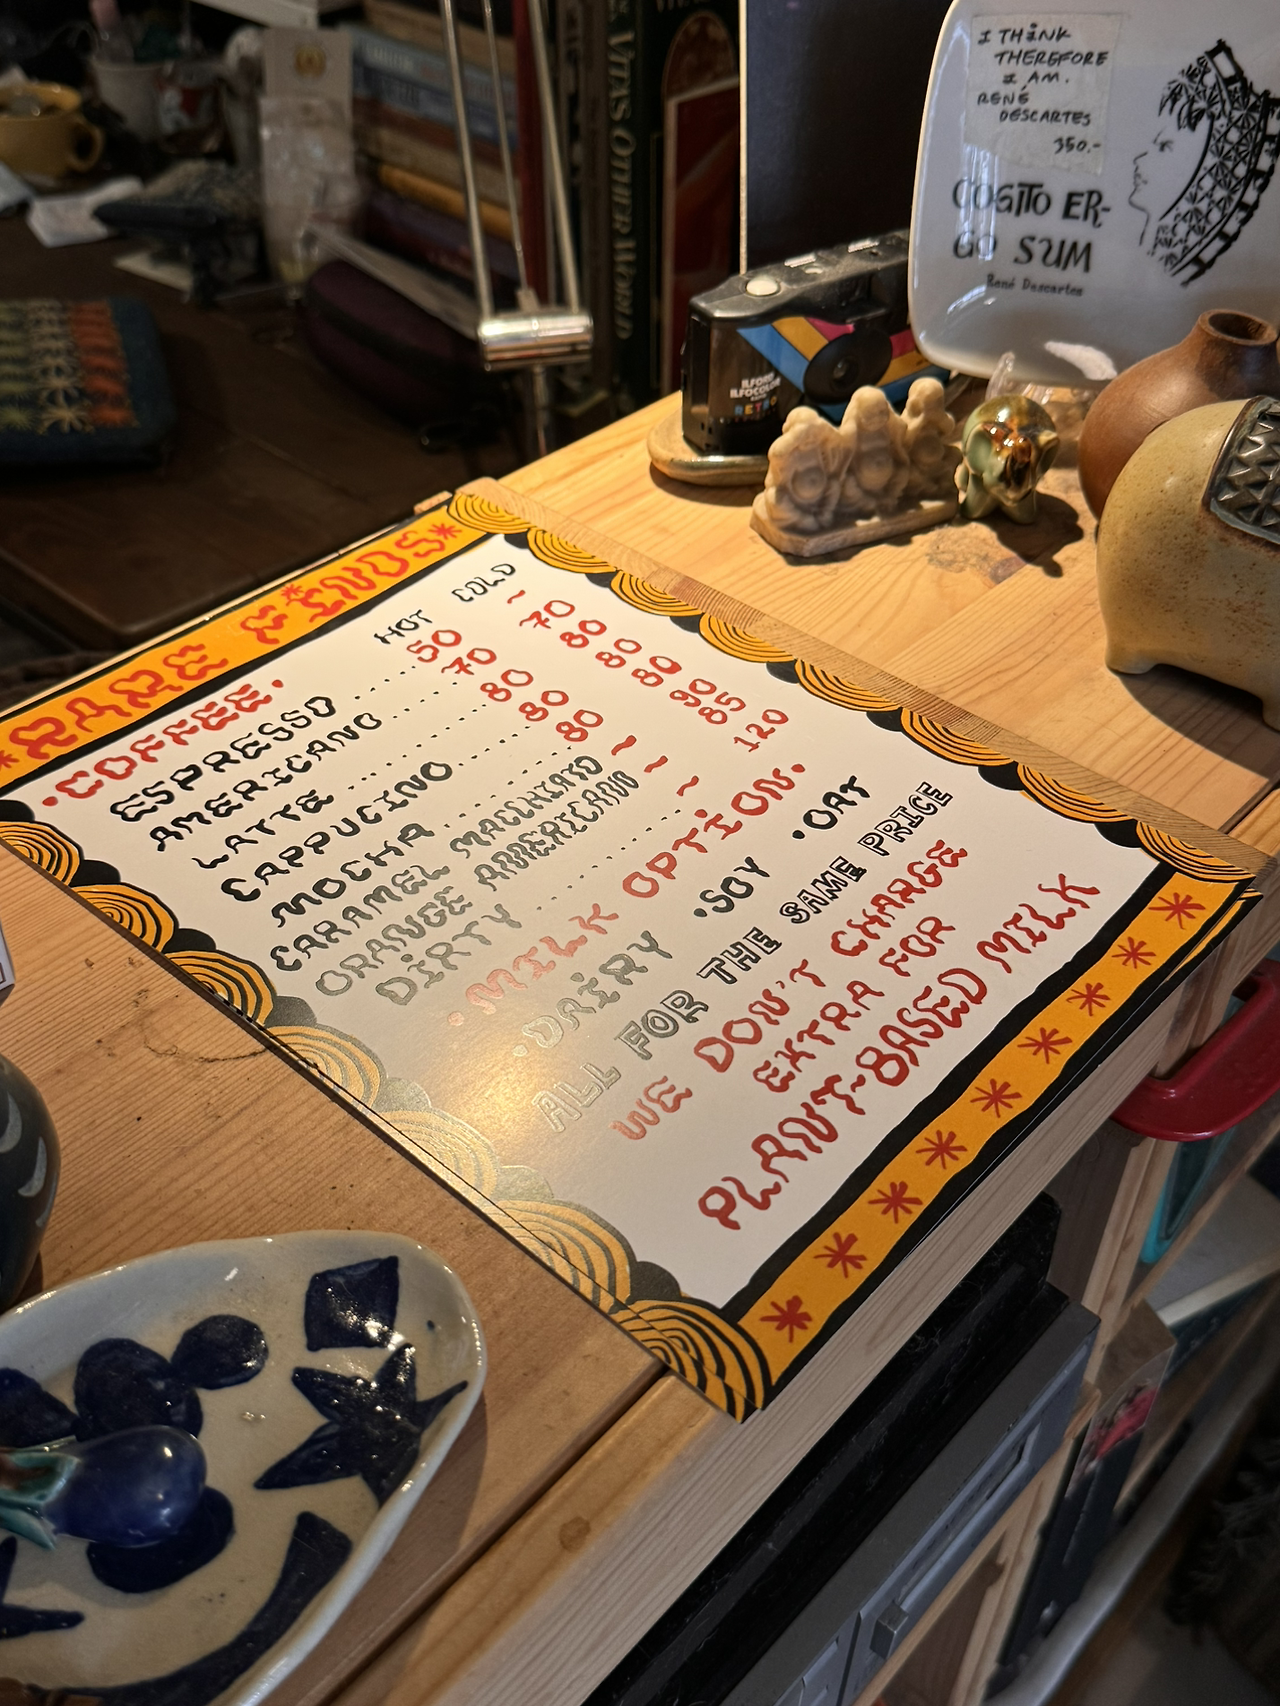 I THINK
THEREFORE
I AM.
RENÉ
DESCARTES
350.-
COGITO ER-
GO SUM
René Descartes
VITA'S OTHER WORLD
ILFORD
ILFOCOLOR
RETRO
*RARE FINDS*
•COFFEE• HOT COLD
ESPRESSO ...... 50 ~
AMERICANO ...... 70 70
LATTE ............ 80 80
CAPPUCINO ...... 80 80
MOCHA ............ 80 80
CARAMEL MACCHIATO ~ 90
ORANGE AMERICAN ~ 85
DIRTY ............ ~ 120
•MILK OPTION•
•DAIRY •SOY •OAT
ALL FOR THE SAME PRICE
WE DON'T CHARGE
EXTRA FOR
PLANT-BASED MILK